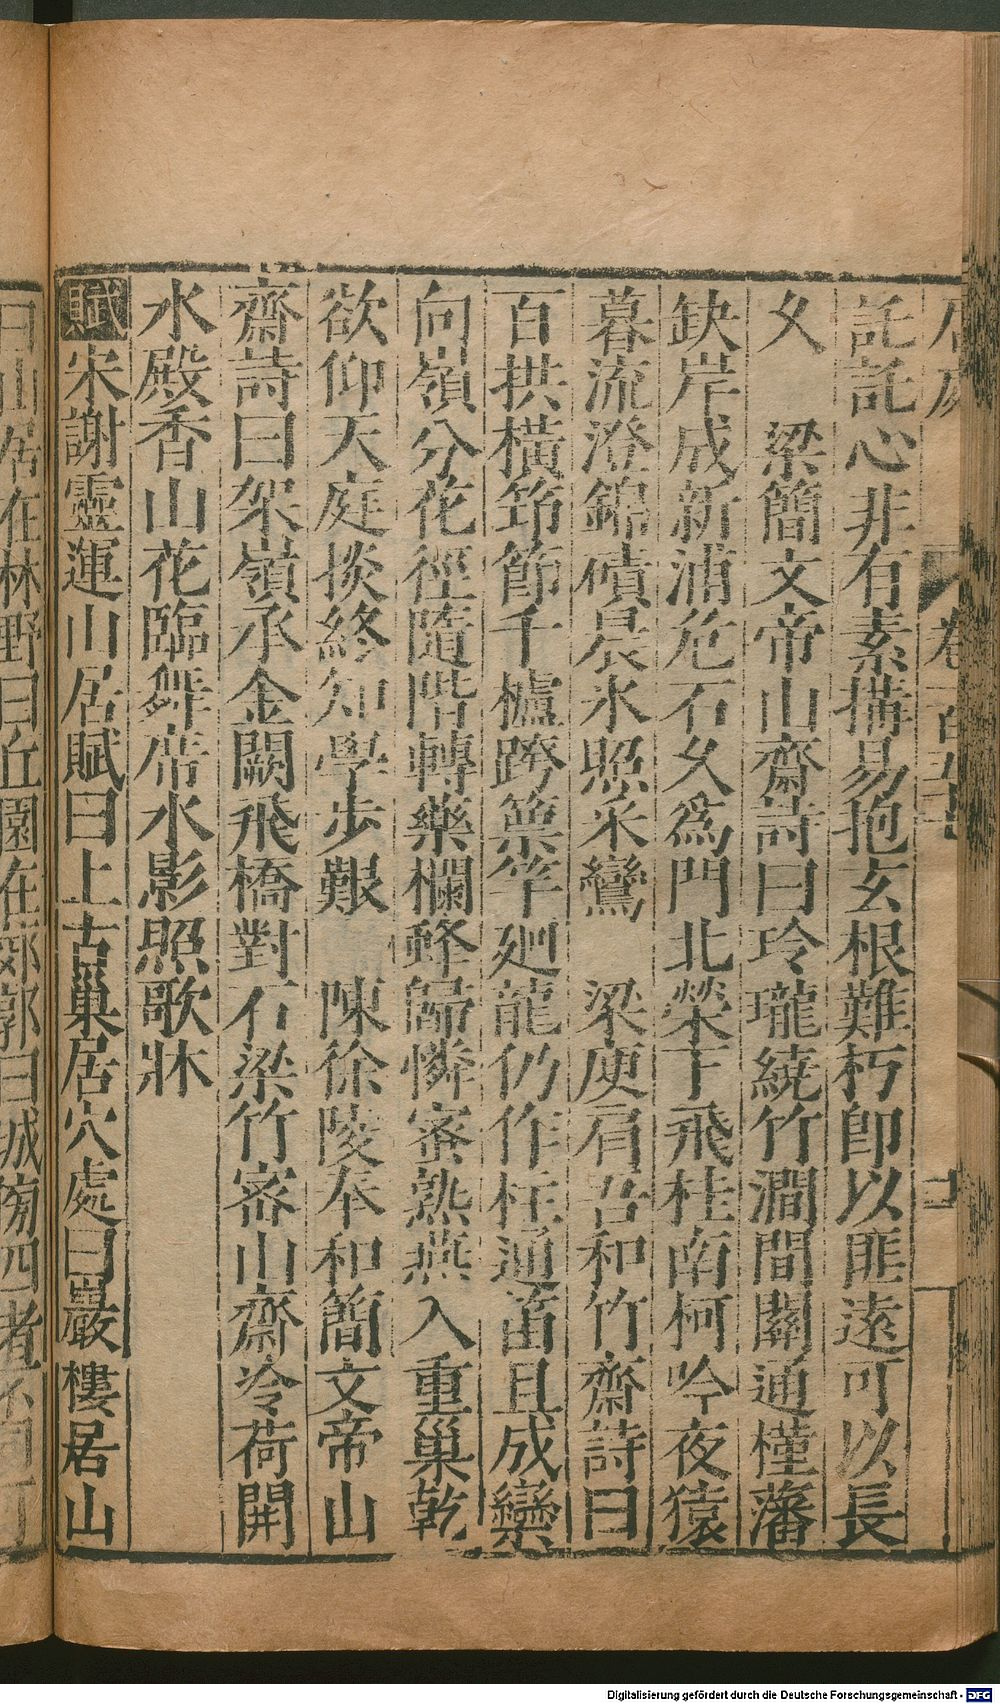 託託心非有素搆易抱玄根難朽即以匪遠可以長
久　梁簡文帝山齋詩曰玲瓏繞竹澗間關通槿藩
缺岸成新浦危石久爲門北榮下飛桂南柯吟夜猿
暮流澄錦磧晨水照采鸞　梁庾肩吾和竹齋詩曰
百拱橫筇節千櫨跨篻竿廻龍仍作柱通笛且成欒
向嶺分花徑隨階轉藥欄蜂歸憐蜜熟燕入重巢乾
欲仰天庭掞終知學步艱　陳徐陵奉和簡文帝山
齋詩曰架嶺承金闕飛橋對石梁竹密山齋冷荷開
水殿香山花臨舞席水影照歌牀
賦宋謝靈運山居賦曰上古巢居穴處曰巖樓居山
曰山居在林野曰丘園在郊郭曰城傍四者不同可
Digitalisierung gefördert durch die Deutsche Forschungsgemeinschaft - DFG